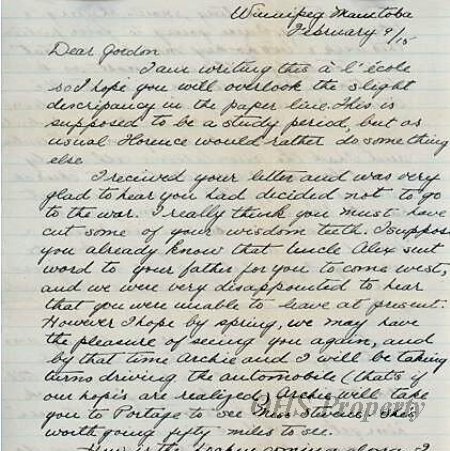 Winnipeg Manitoba
February 9/15
Dear Gordon
I am writing this à l'école
so I hope you will overlook the slight
discripancy in the paper line. This is
supposed to be a study period, but as
usual Florence would rather do something
else
I recived your letter and was very
glad to hear you had decided not to go
to the war. I really think you must have
cut some of your wisdom teeth. I suppose
you already know that Uncle Alex sent
word to your father for you to come west,
and we were very disappointed to hear
that you were unable to leave at present.
However I hope by spring, we may have
the pleasure of seeing you again, and
by that time Archie and I will be taking
turns driving the automobile (that's if
our hope's are realized) Archie will take
you to Portage to see Miss she's
worth going fifty miles to see.
How is the coming along I
HS Property